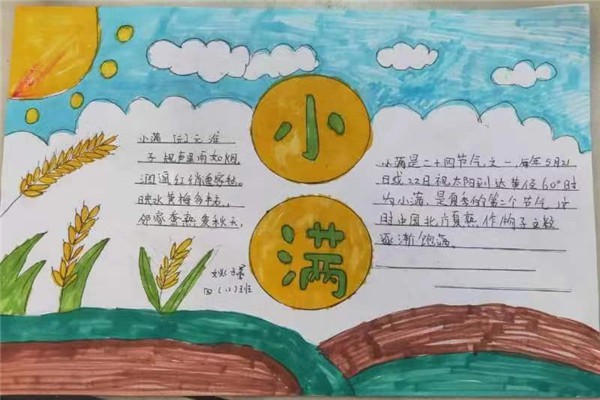 小满
小满 [元]元淮
子规声里雨如烟
润逼红绡透客毡
映水黄梅多半老
邻家蚕熟麦秋天
四(二)班
小满是二十四节气之一,每年5月21
日或22日视太阳到达黄经60°时
为小满,是夏季的第二个节气,这
时中国北方夏熟作物子粒
逐渐饱满